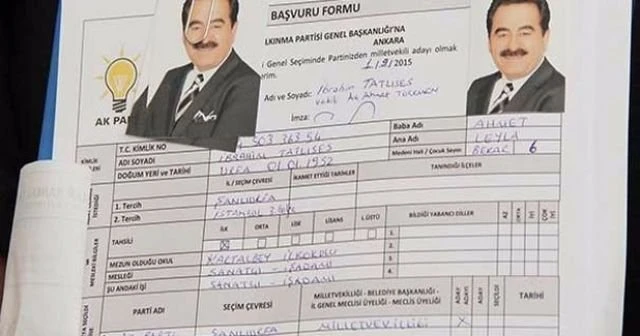 BAŞVURU FORMU
LKINMA PARTİSİ GENEL BAŞKANLIĞI'NA
ANKARA
i Genel Seçiminde Partinizden milletvekili adayı olmak
erim.
1/2/2015
Adı ve Soyadı: İbrahim TATLISES
vekili Av. Ahmet
İmza:
AK PAR
T.C. KİMLİK NO 503 363 54
ADI SOYADI İBRAHİM TATLISES
DOĞUM YERİ ve TARİHİ URFA 01.01.1952
Baba Adı AHMET
Ana Adı LEYLA
Medeni Hali / Çocuk Sayısı BEKAR 6
KİMLİK
İL / SEÇİM ÇEVRESİ İKAMET ETTİĞİ TARİHLER TANINDIĞI İLÇELER
1. Tercih ŞANLIURFA
2. Tercih İSTANBUL
İSTEDİĞİ
TAHSİLİ İLK ORTA LİSE LİSANS L.ÜSTÜ BİLDİĞİ YABANCI DİLLER AZ ORTA İYİ ÇOK İYİ
1.
2.
3.
4.
MEZUN OLDUĞU OKUL KARTALBEY İLKOKULU
MESLEĞİ SANATÇI - İŞADAMI
ŞU ANDAKİ İŞİ SANATÇI - İŞADAMI
MESLEKİ BİLGİLER
PARTİ ADI SEÇİM ÇEVRESİ MİLLETVEKİLLİĞİ - BELEDİYE BAŞKANLIĞI -
İL GENEL MECLİSİ ÜYELİĞİ - MECLİS ÜYELİĞİ
ADAY ADAYI ADAY SEÇİLDİ TARİHİ
ŞANLIURFA MİLLETVEKİLLİĞİ X